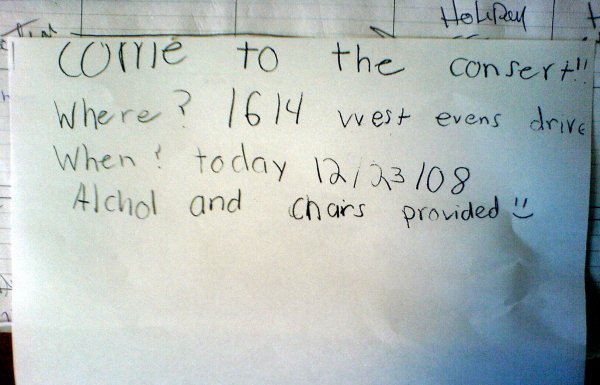 Holiday
come to the consert!!
Where? 1614 west evens drive
When? today 12/23/08
Alchol and chairs provided :)